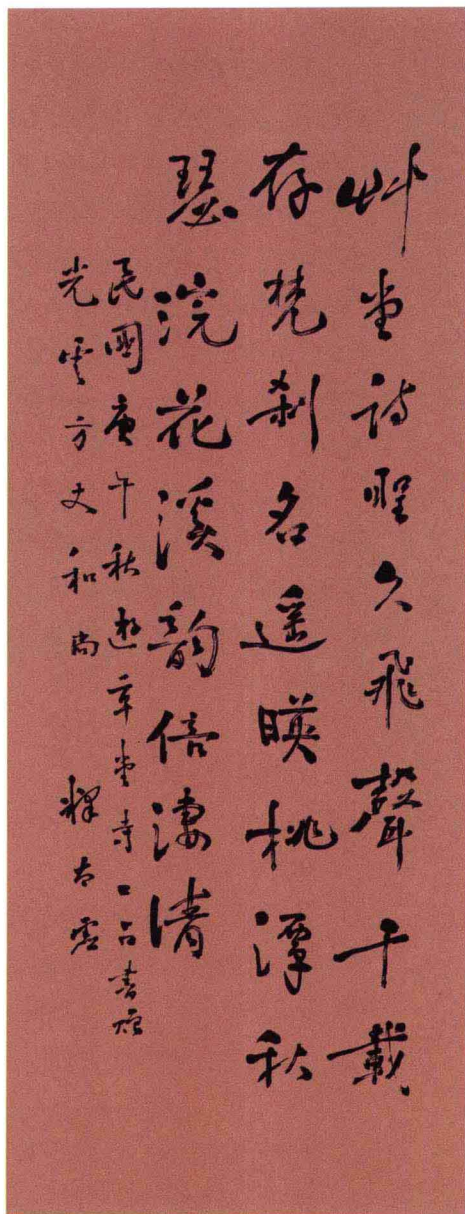 艸堂詩聖久飛聲千載
存梵刹名遥暎桃潭秋
瑟浣花溪韵倍淒清
民國庚午秋遊草堂寺口占書贈
光雲方丈和尚 釋太虛